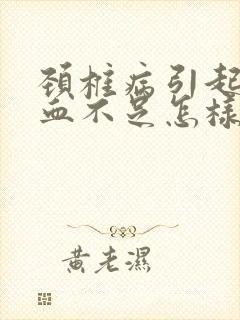 颈椎病引起
血不足怎样
黄老濕